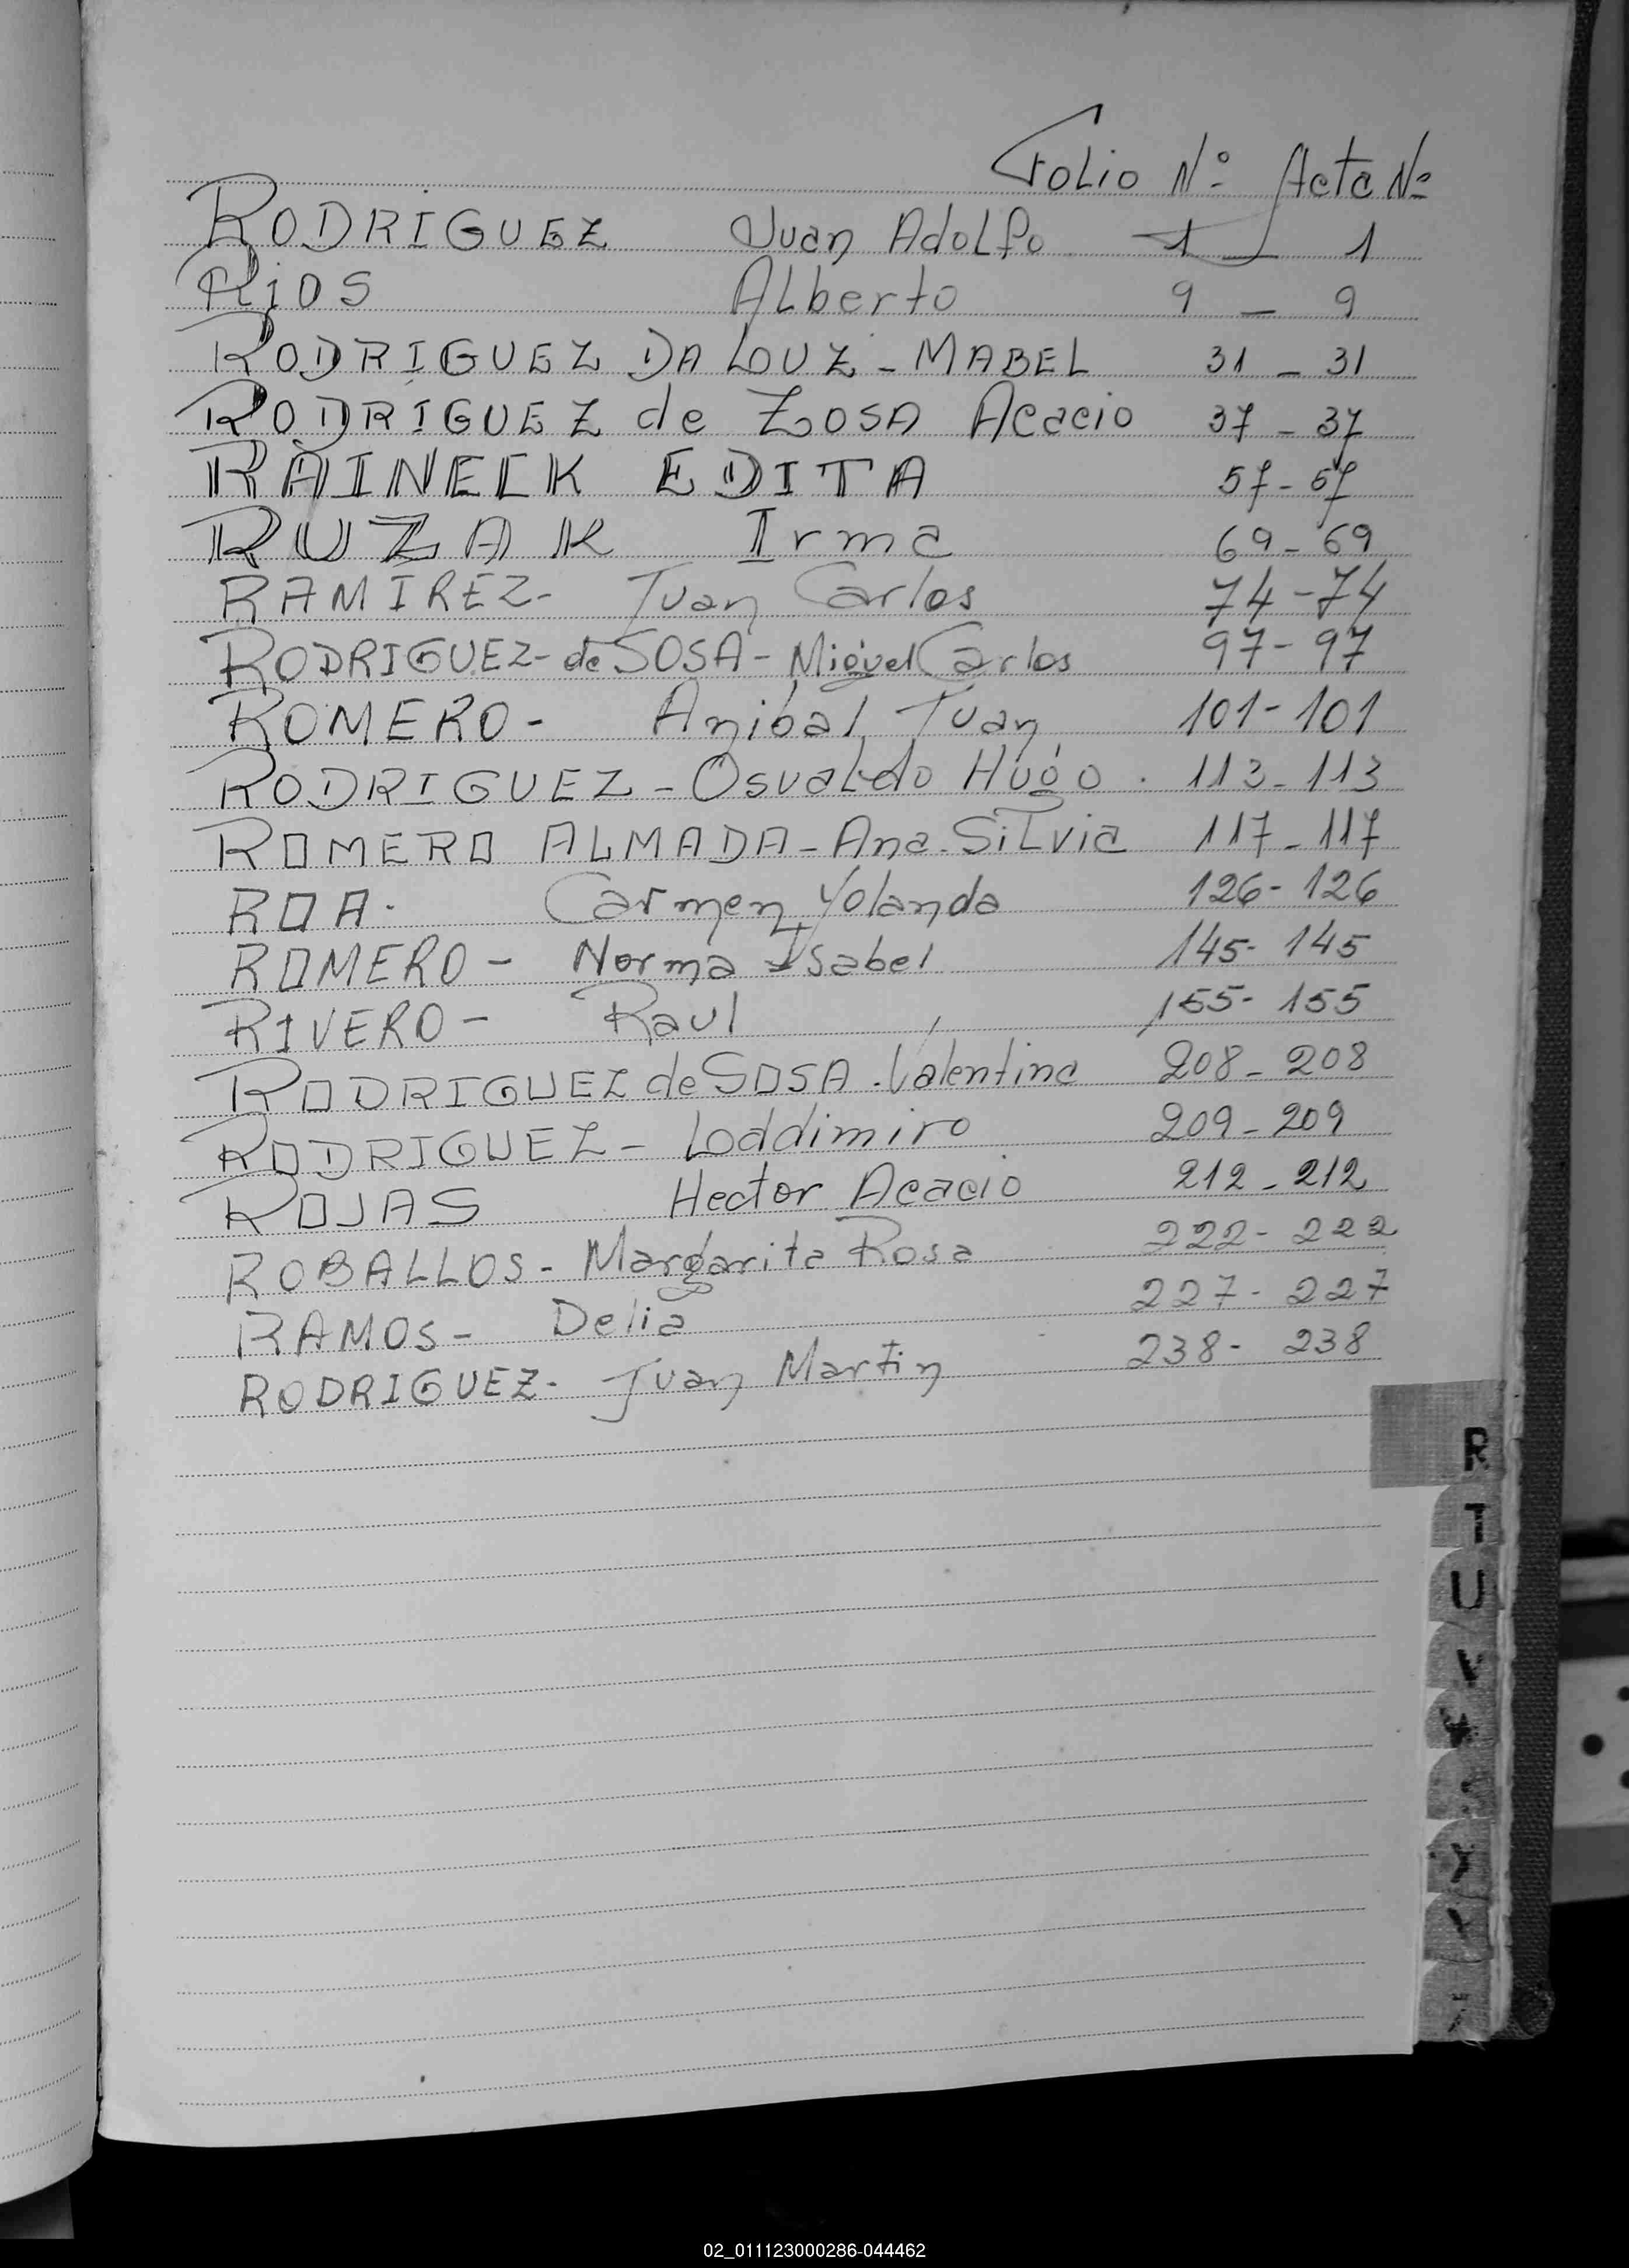 Folio Nº Acta Nº
RODRIGUEZ Juan Adolfo 1 1
RIOS Alberto 9 - 9
RODRIGUEZ DA LOUZ - MABEL 31 - 31
RODRIGUEZ de ZOSA Acacio 37 - 37
RAINECK EDITA 57 - 57
RUZAK Irma 69 - 69
RAMIREZ - Juan Carlos 74 - 74
RODRIGUEZ - de SOSA - Miguel Carlos 97 - 97
ROMERO - Anibal Juan 101 - 101
RODRIGUEZ - Osvaldo Hugo . 113 - 113
ROMERO ALMADA - Ana. Silvia 117 - 117
ROA - Carmen Yolanda 126 - 126
ROMERO - Norma Isabel 145 - 145
RIVERO - Raul 155 - 155
RODRIGUEZ de SOSA . Valentina 208 - 208
RODRIGUEZ - Loddimiro 209 - 209
ROJAS Hector Acacio 212 - 212
ROBALLOS - Margarita Rosa 222 - 222
RAMOS - Delia 227 - 227
RODRIGUEZ - Juan Martin 238 - 238
R
T
U
V
02_011123000286-044462